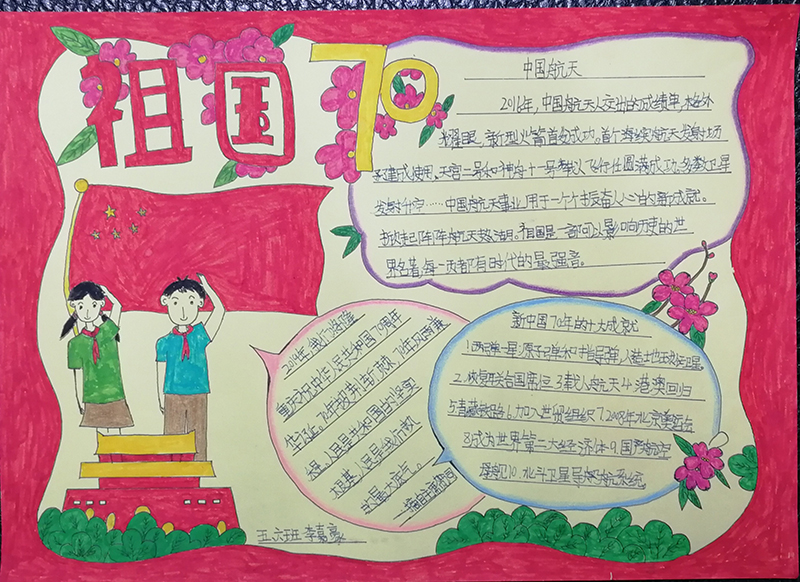 祖国70
中国航天
2016年,中国航天人交出的成绩单,格外
耀眼。新型火箭首飞成功。首个海滨航天发射场
建成使用,天宫二号和神舟十一号载人飞行任圆满成功,多数卫星
发射升空……中国航天事业,用一个个振奋人心的新成就。
掀起阵阵航天热潮。祖国是一部可以影响历史的世
界名著,每一页都有时代的最强音。
2019年我们将隆
重庆祝中华人民共和国70周年
华诞。
人民是共和国的坚实
根基,人民是我们执政
的最大底气。
新中国70年的十大成就
1.两弹一星
2.恢复联合国席位 3.载人航天 4.港澳回归
5.青藏铁路 6.加入世贸组织 7.2008年北京奥运会
8.成为世界第二大经济体 9.国产航空
母舰 10.北斗卫星导航系统。
五.六班 李嘉豪